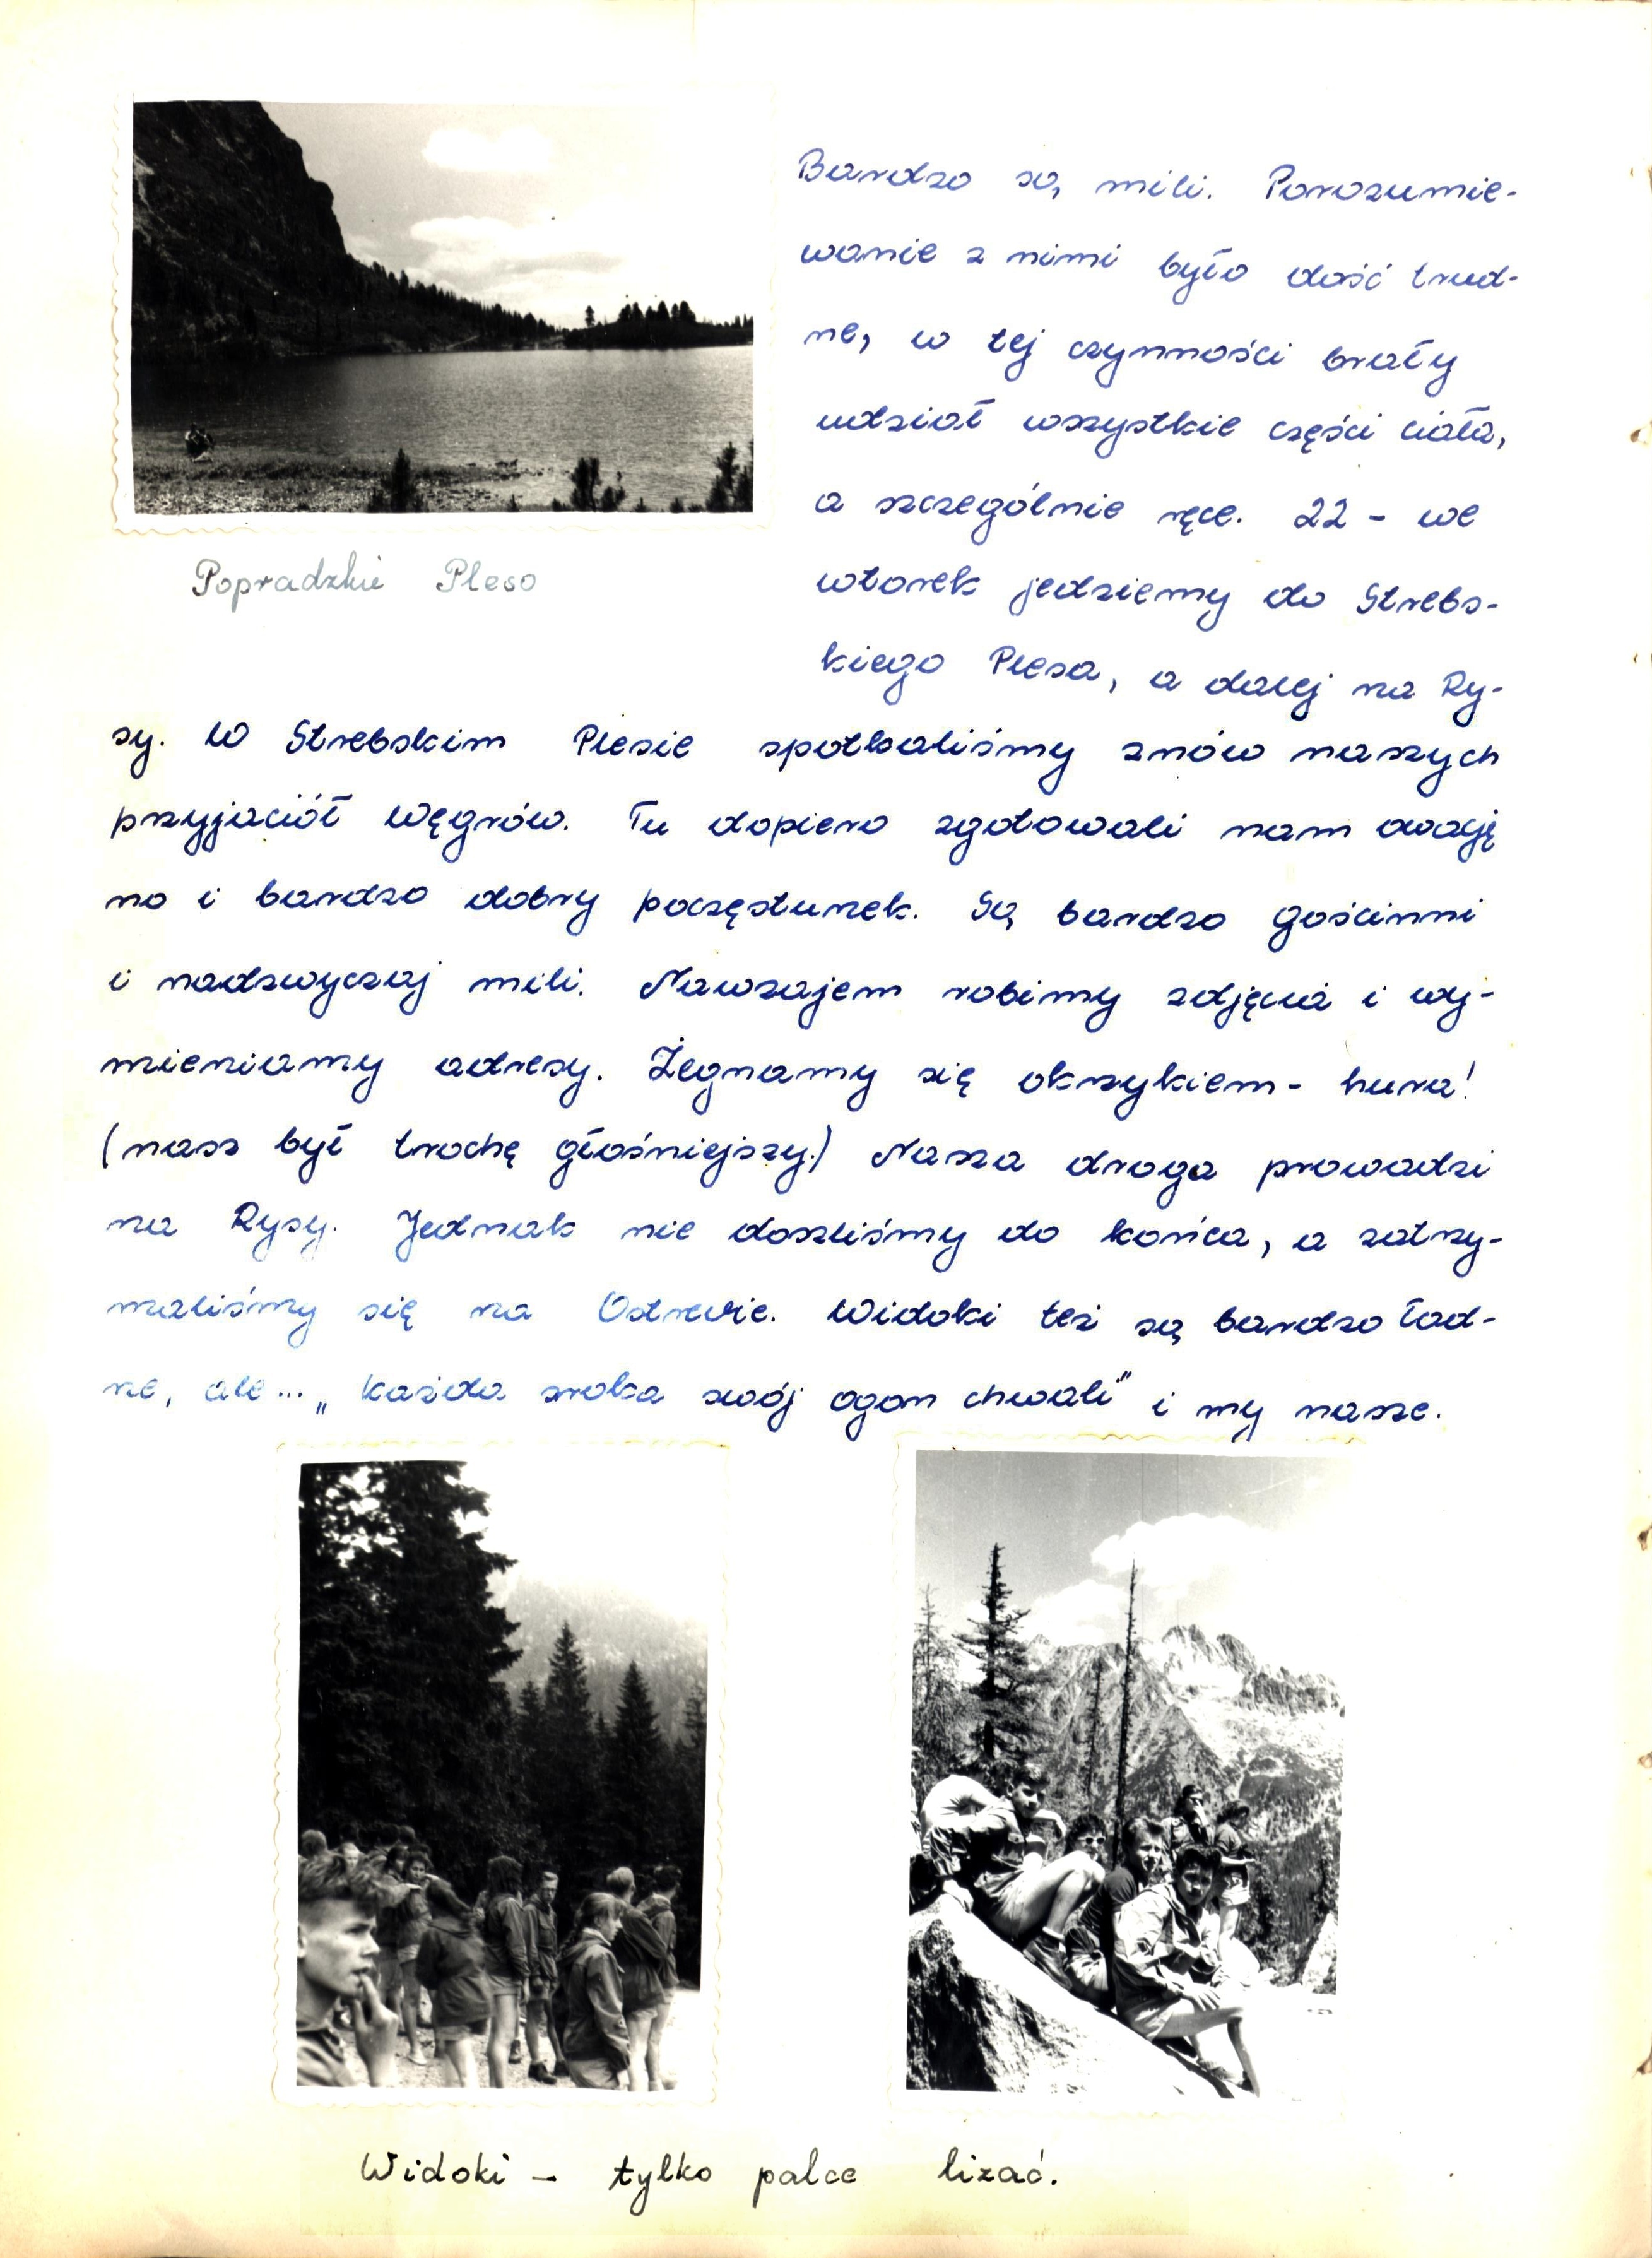 Bardzo są mili. Porozumie-
wanie z nimi było dość trud-
ne, w tej czynności brały
udział wszystkie części ciała,
a szczególnie ręce. 22 - we
wtorek jedziemy do Strebs-
kiego Plesa, a dalej na Ry-
Popradzkie Pleso
sy. W Strebskim Plesie spotkaliśmy znów naszych
przyjaciół Węgrów. Tu dopiero zgotowali nam owację
no i bardzo dobry poczęstunek. Są bardzo gościnni
i nadzwyczaj mili. Nawzajem robimy zdjęcia i wy-
mieniamy adresy. Żegnamy się okrzykiem - hura!
(nasz był trochę głośniejszy.) Nasza droga prowadzi
na Rysy. Jednak nie doszliśmy do końca, a zatrzy-
maliśmy się na Ostrwie. Widoki też są bardzo ład-
ne, ale... „każda sroka swój ogon chwali" i my nasze.
Widoki - tylko palce lizać.